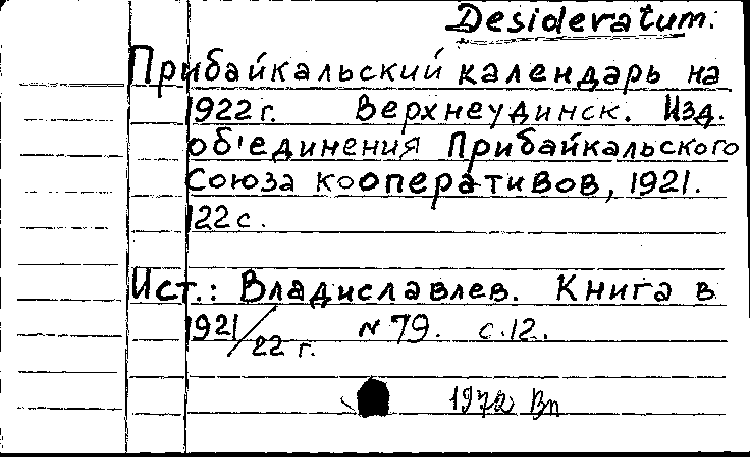 Desideratum.
Прибайкальский календарь на
1922 г. Верхнеудинск. Изд.
об'единения Прибайкальского
Союза кооперативов, 1921.
122 с.
Ист.: Владиславлев. Книга в
1921/22 г. № 79. с. 12.
1972 Вп